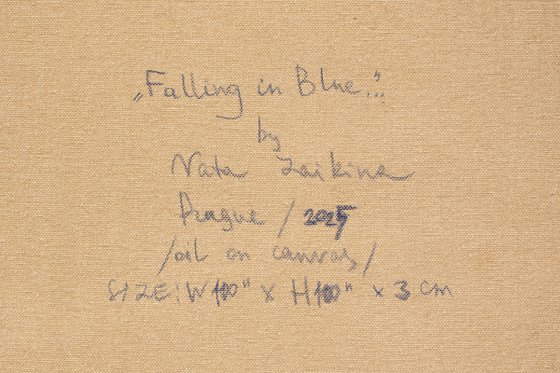 „Falling in Blue..."
by
Nata Zaikina
Prague / 2025
/oil on canvas/
SIZE: W 100" x H 100" x 3 cm